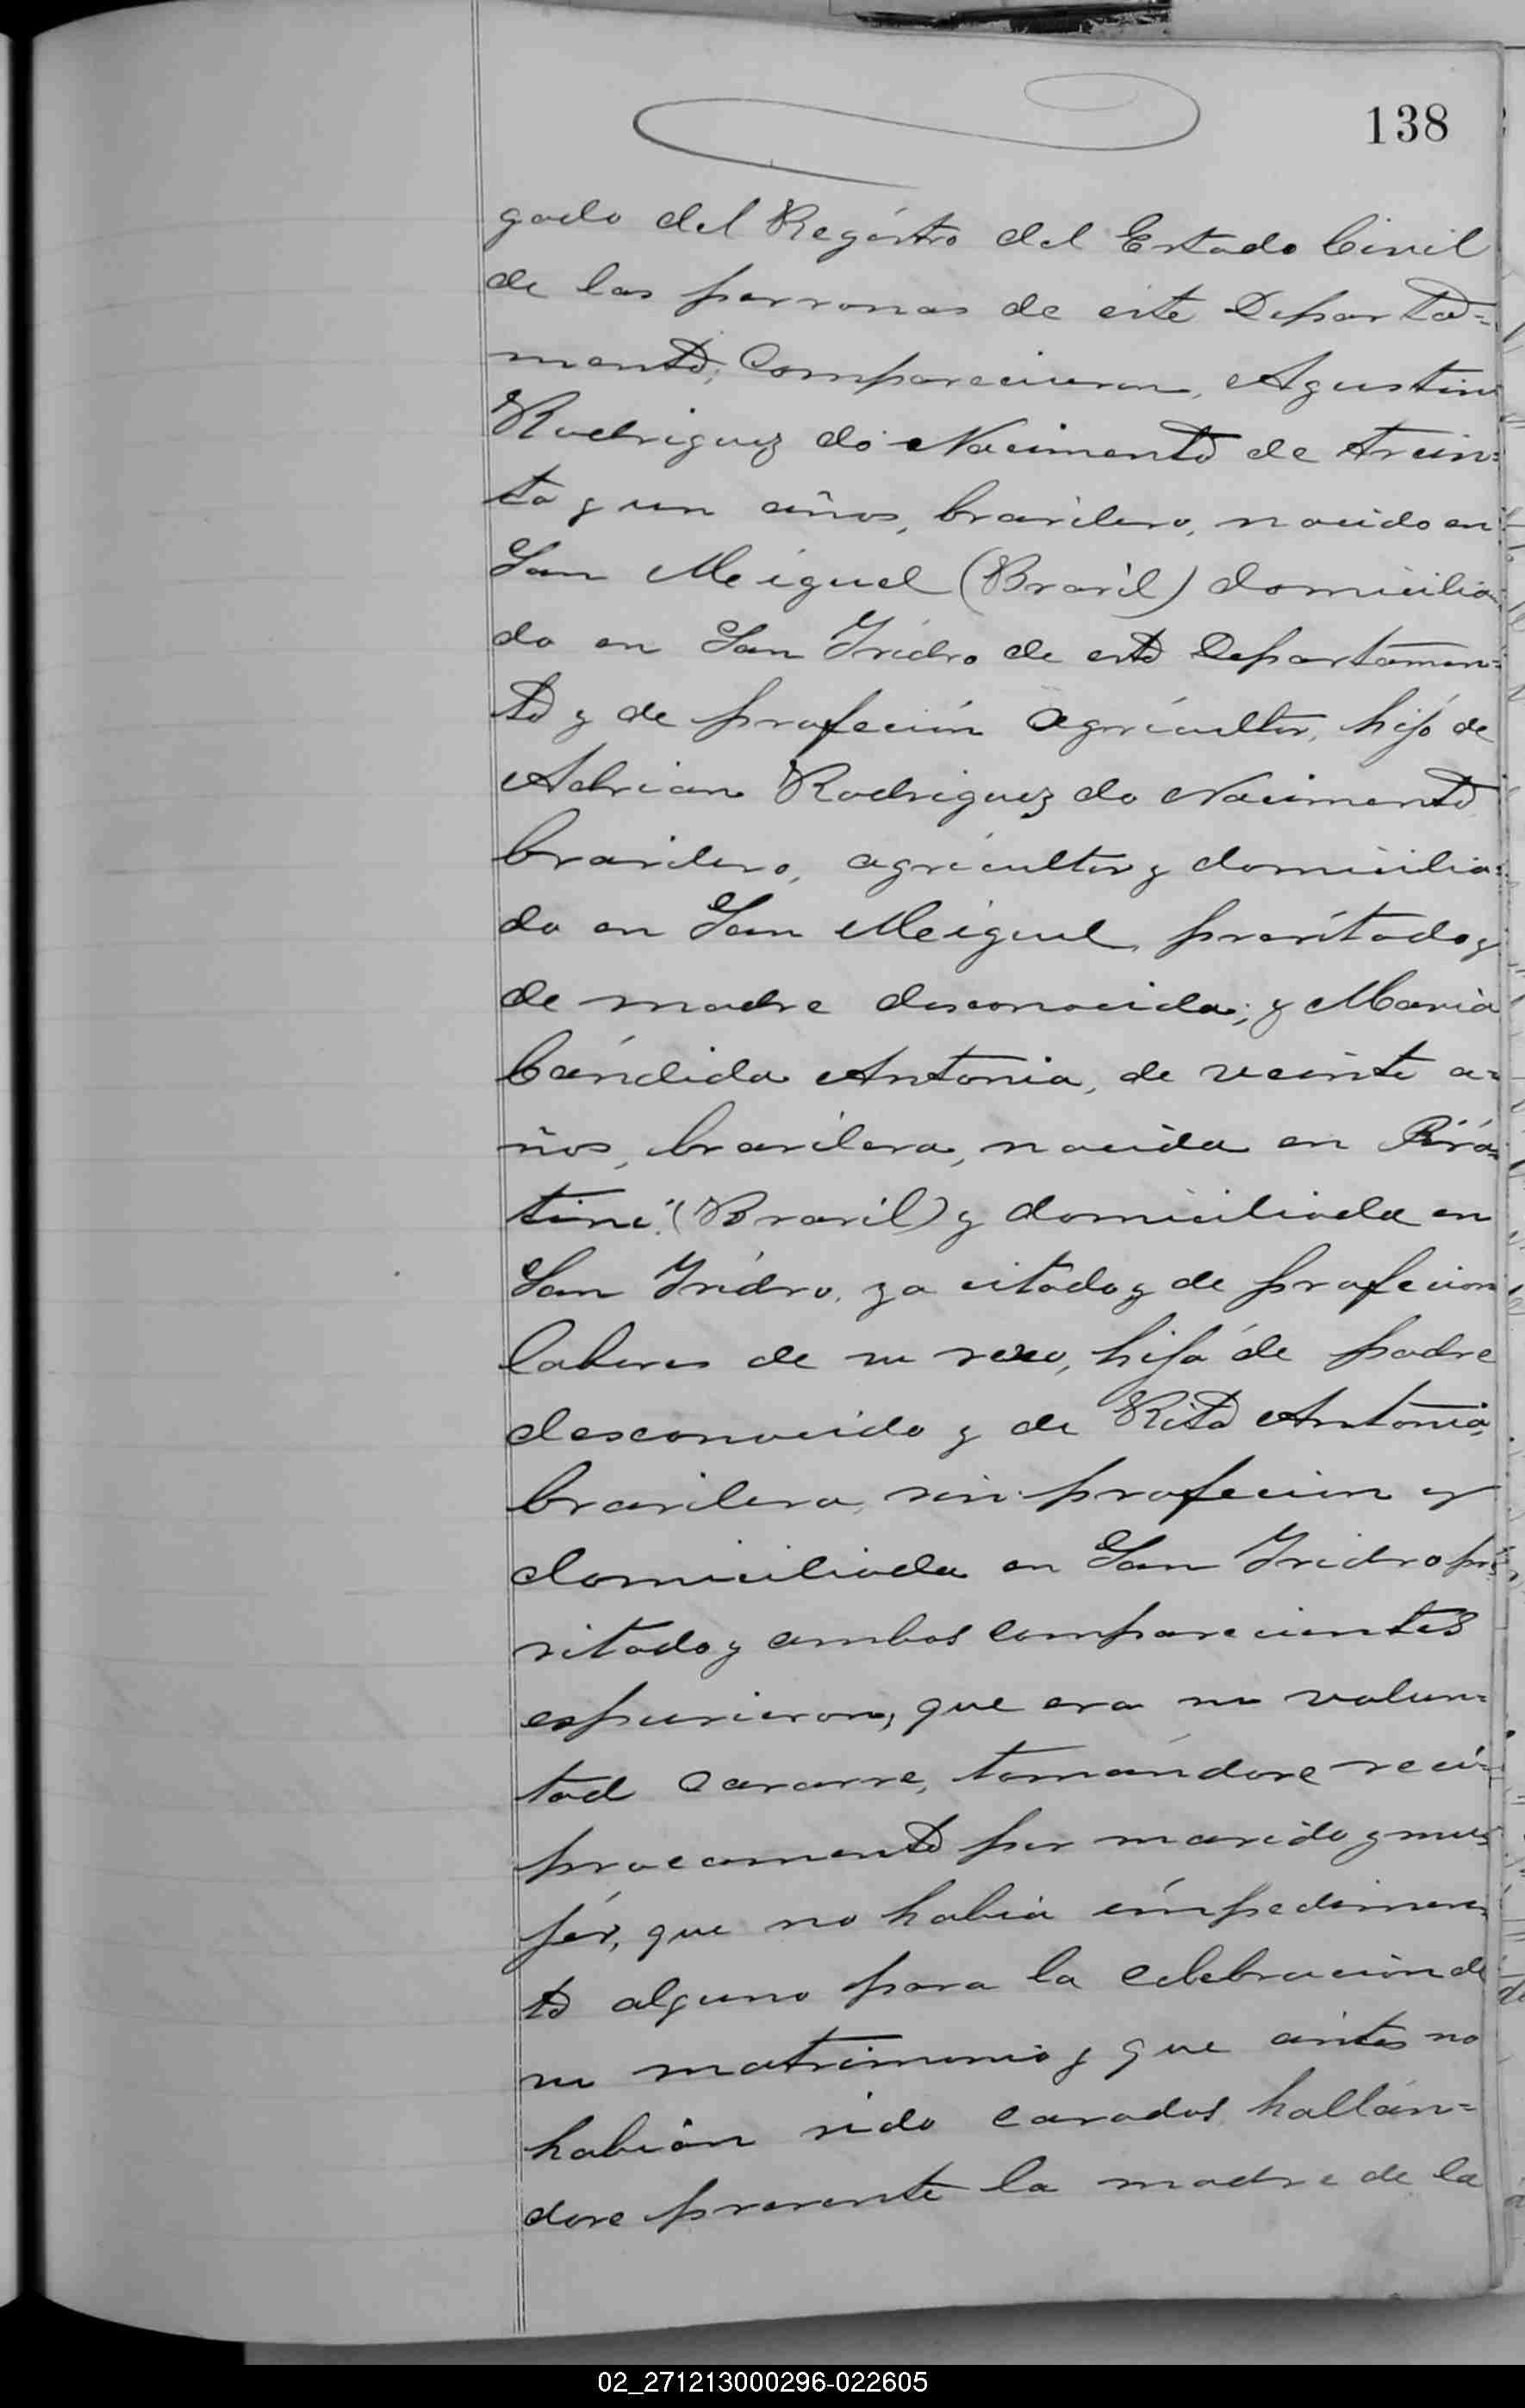 138
gado del Registro del Estado Civil
de las personas de este Departa=
mento; Comparecieron, Agustin
Rodriguez do Nacimento de trein=
ta y un años, brasilero, nacido en
San Miguel (Brasil) domicilia
do en San Isidro de este Departamen=
to y de profeción agricultor, hijo de
Adrian Rodriguez do Nacimento
brasilero, agricultor y domicilia=
do en San Miguel, precitado y
de madre desconocida; y Maria
Cándida Antonia, de veinte a=
ños, brasilera, nacida en Pira=
tini" (Brasil) y domiciliada en
San Isidro, ya citado y de profecion
labores de su sexo, hija de padre
desconocido y de Rita Antonia,
brasilera, sin profecion y
domiciliada en San Isidro pre=
sitado y ambos comparecientes
espusieron, que era su volun=
tad casarse, tomándose recí=
procamente por marido y mu=
jér, que no habia impedimen=
to alguno para la celebracion de
su matrimonio y que antes no
habian sido casados, hallán=
dose presente la madre de la
02_271213000296-022605